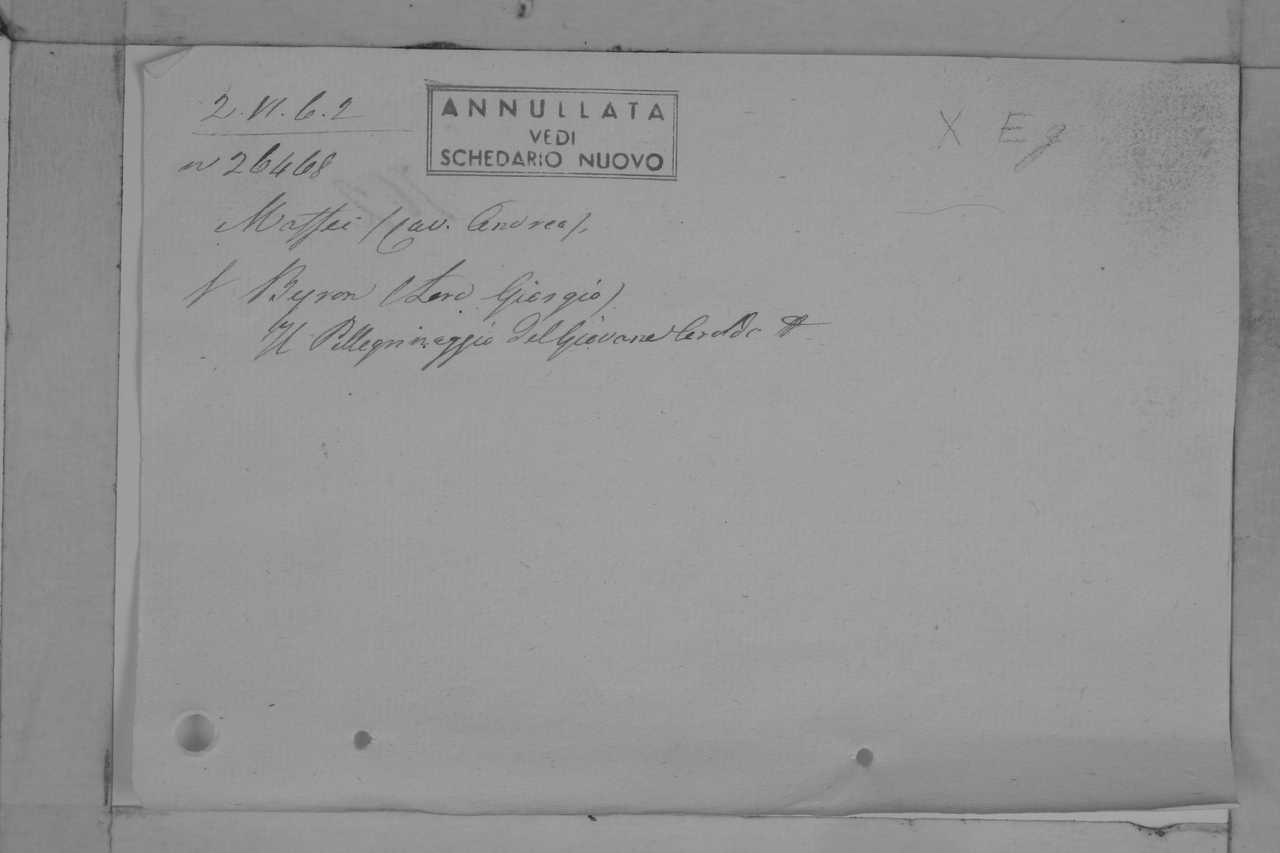 2.VI.6.2
ANNULLATA
VEDI
SCHEDARIO NUOVO
X Eg
n 26468
Maffei (Cav. Andrea).
V Byron (Lord Giorgio)
Il Pellegrinaggio del Giovane Aroldo